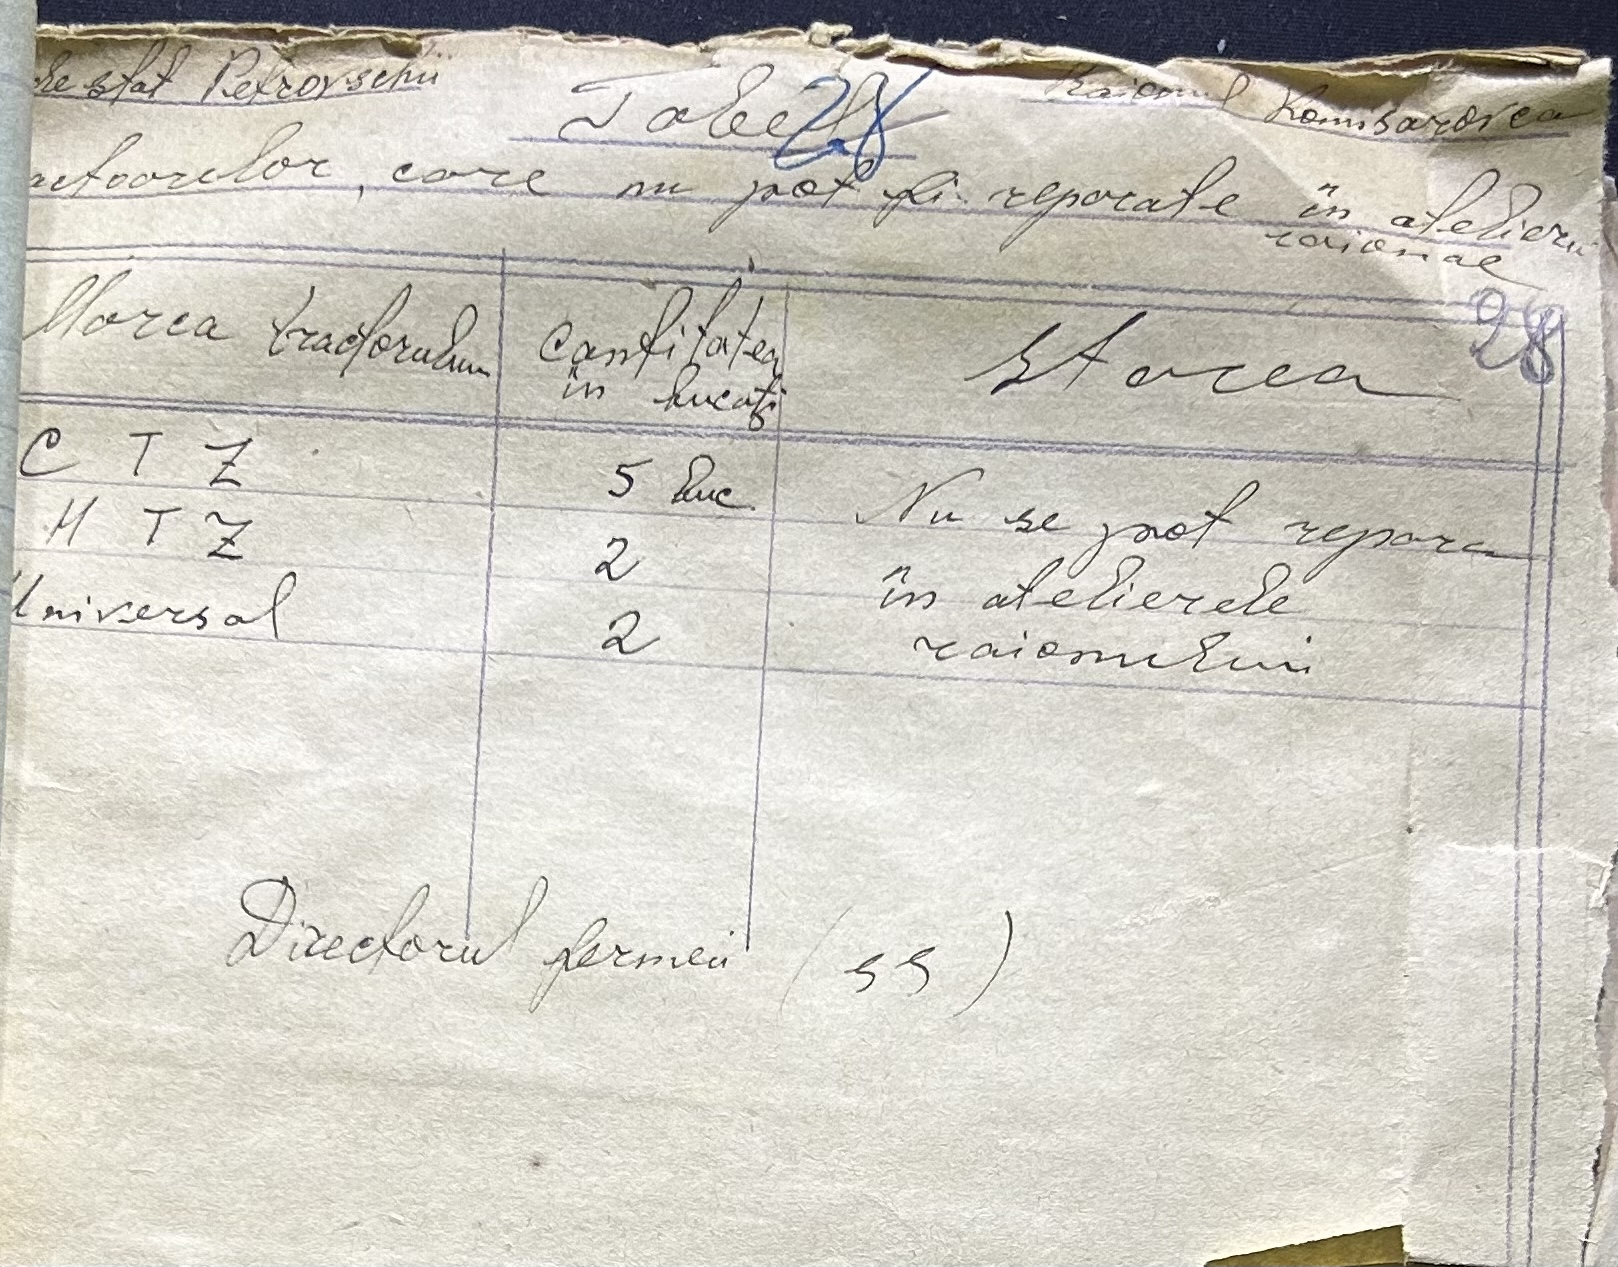 de stat Petrovschii
Raionul Komisarovca
Tabel
28
actoarelor, care nu pot fi reparate în atelierul
raional
28
Marca tractorului
Cantitatea
în bucăți
Starea
C T Z
5 buc
Nu se pot repara
H T Z
2
în atelierele
Universal
2
raionului
Directorul fermei (ss)